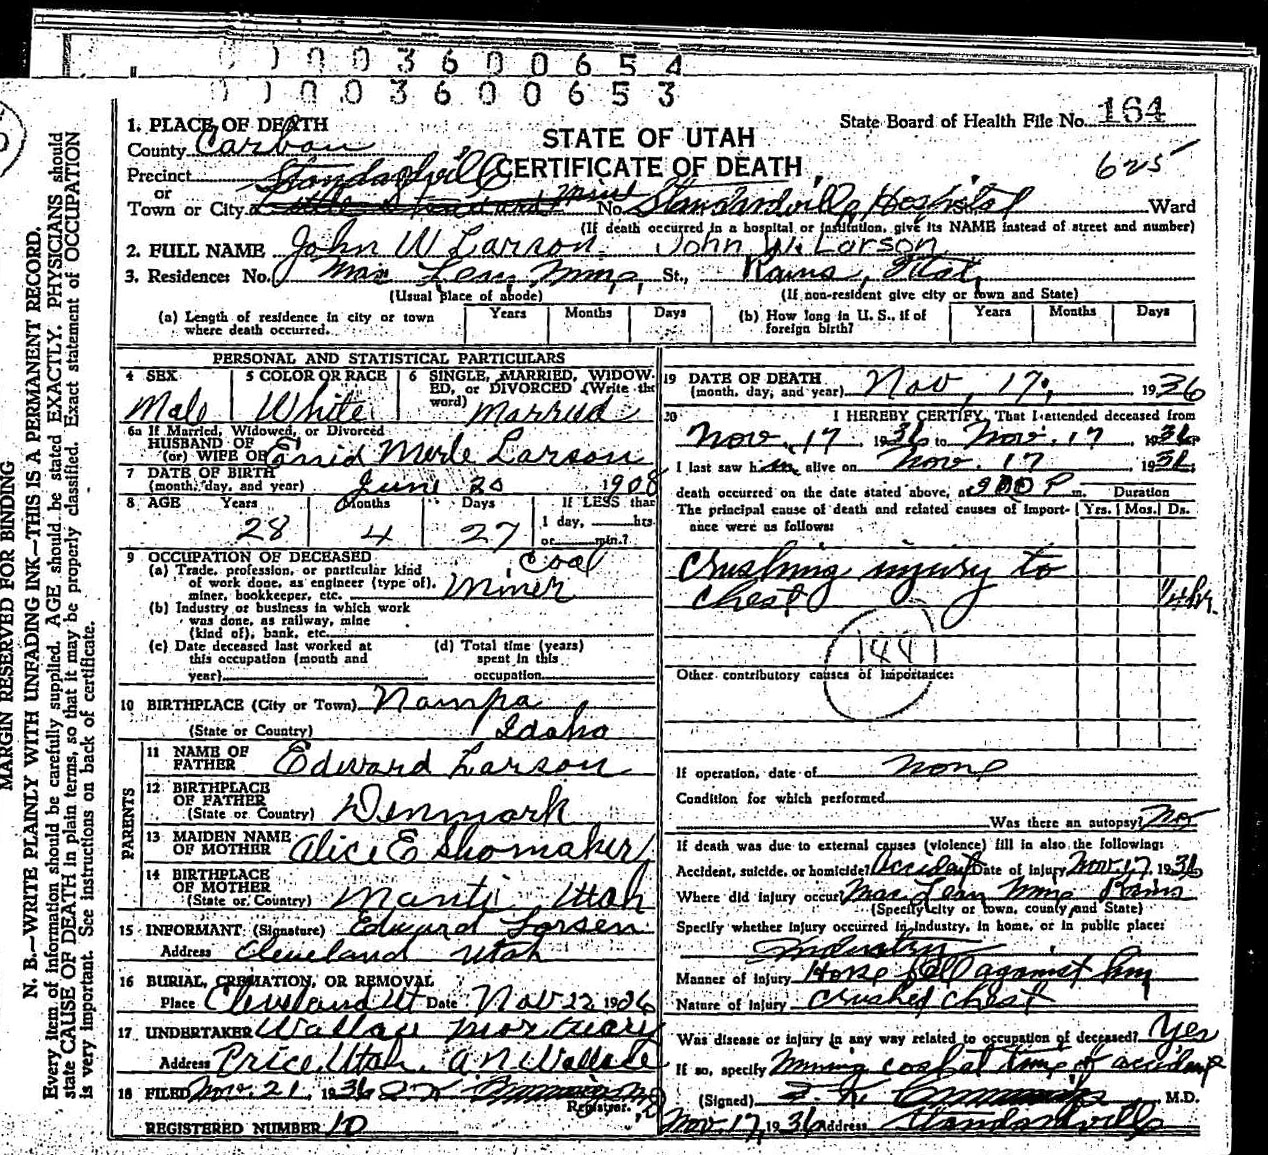 0003600654
0003600653
1. PLACE OF DEATH
County Carbon
STATE OF UTAH
CERTIFICATE OF DEATH
State Board of Health File No. 164
625
Precinct Standardville
or
Town or City No. Standardville Hospital St. Ward
(If death occurred in a hospital or institution, give its NAME instead of street and number)
2. FULL NAME John W Larson John W. Larson
3. Residence: No. Mac Lean Mine, St., Rains, Utah
(Usual place of abode) (If non-resident give city or town and State)
(a) Length of residence in city or town where death occurred. Years Months Days
(b) How long in U. S., if of foreign birth? Years Months Days
PERSONAL AND STATISTICAL PARTICULARS
4 SEX Male
5 COLOR OR RACE White
6 SINGLE, MARRIED, WIDOWED, or DIVORCED (Write the word) Married
6a If Married, Widowed, or Divorced
HUSBAND OF
(or) WIFE OF Enid Merle Larson
7 DATE OF BIRTH
(month, day, and year) June 20 1908
8 AGE Years 28 Months 4 Days 27 If LESS than 1 day, hrs. or min.?
9 OCCUPATION OF DECEASED
(a) Trade, profession, or particular kind of work done, as engineer (type of), miner, bookkeeper, etc. Coal Miner
(b) Industry or business in which work was done, as railway, mine (kind of), bank, etc.
(c) Date deceased last worked at this occupation (month and year)
(d) Total time (years) spent in this occupation
10 BIRTHPLACE (City or Town) Nampa
(State or Country) Idaho
PARENTS
11 NAME OF FATHER Edward Larson
12 BIRTHPLACE OF FATHER
(State or Country) Denmark
13 MAIDEN NAME OF MOTHER Alice E Shomaker
14 BIRTHPLACE OF MOTHER
(State or Country) Manti Utah
15 INFORMANT (Signature) Edward Larsen
Address Cleveland Utah
16 BURIAL, CREMATION, OR REMOVAL
Place Cleveland Ut Date Nov 22 1936
17 UNDERTAKER Wallace Mortuary
Address Price, Utah. A N Wallace
18 FILED Nov. 21, 1936
Registrar.
REGISTERED NUMBER 10
19 DATE OF DEATH
(month, day, and year) Nov, 17, 1936
20 I HEREBY CERTIFY, That I attended deceased from
Nov. 17 1936 to Nov. 17 1936
I last saw him alive on Nov. 17 1936
death occurred on the date stated above, at 9:00 P m.
Duration
The principal cause of death and related causes of importance were as follows: Yrs. Mos. Ds.
Crushing injury to
chest 1/4 hr.
Other contributory causes of importance:
If operation, date of None
Condition for which performed
Was there an autopsy? No
If death was due to external causes (violence) fill in also the following:
Accident, suicide, or homicide? Accident Date of injury Nov. 17 1936
Where did injury occur? Mac Lean Mine Rains
(Specify city or town, county and State)
Specify whether injury occurred in industry, in home, or in public place:
Industry
Manner of injury Horse fell against him
Nature of injury Crushed chest
Was disease or injury in any way related to occupation of deceased? Yes
If so, specify Mining coal at time of accident
(Signed) M.D.
Nov. 17, 1936 Address Standardville
MARGIN RESERVED FOR BINDING
N. B.—WRITE PLAINLY WITH UNFADING INK—THIS IS A PERMANENT RECORD.
Every item of information should be carefully supplied. AGE should be stated EXACTLY. PHYSICIANS should
state CAUSE OF DEATH in plain terms, so that it may be properly classified. Exact statement of OCCUPATION
is very important. See instructions on back of certificate.